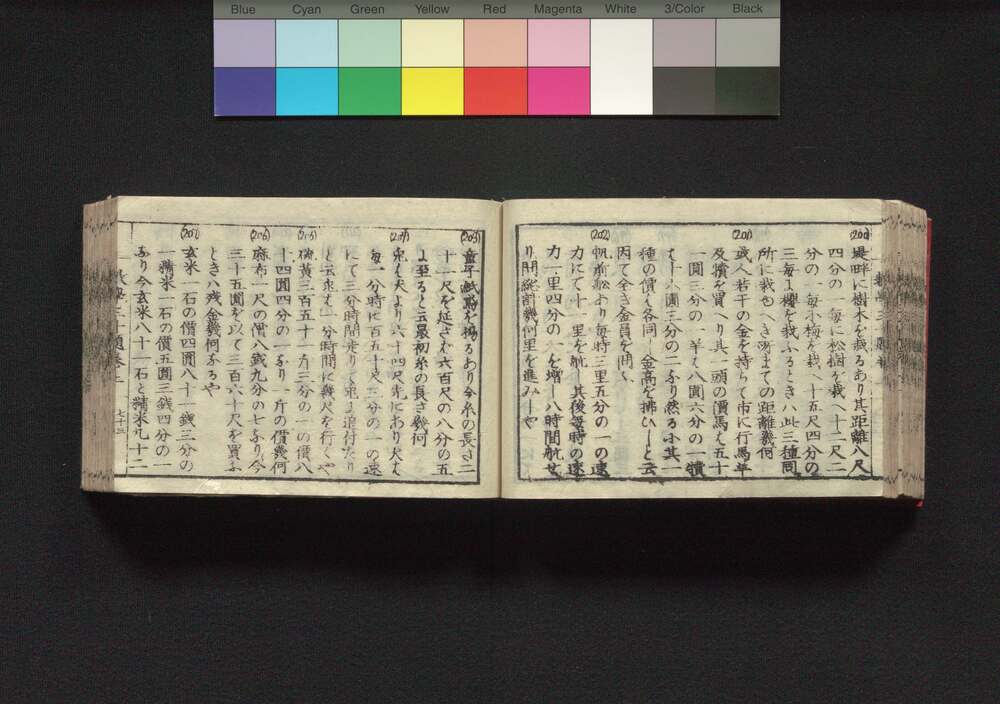 Blue Cyan Green Yellow Red Magenta White 3/Color Black
(200)
堤畔に樹木を栽るあり其距離八尺
四分の一毎に松樹を栽へ十二尺二
分の一毎小梅を栽へ十五尺四分の
三毎よ櫻を栽ふるときハ此三種同
所に栽也へき所までの距離幾何
(201)
或人若干の金を持ちて市に行馬羊
及犢を買へり其一頭の價馬え五十
一圓三分の一羊え八圓六分の一犢
え十 圓三分の二なり然るに其一
種の價え各同し金高を拂ひしと云
因て全き金員を問ふ
(202)
帆前舩あり毎時三里五分の一の速
力にて十一里を航し其後毎時の速
力一里四分の一を増し八時間航せ
り開総計幾何里を進みしや
(203)
童子紙鳶を揚るあり今糸の長さ二
十一尺を延さバ六百尺の八分の五
よ至ると云最初糸の長さ幾何
(204)
兎え犬より六十四尺先にあり犬え
毎一分時に百五十尺二分の一の速
にて三分時間走りて兎よ追付たり
と云兎え一分時間に幾尺を行くや
(205)
硫黄三百五十一斤二分の一の價八
十四圓四分の一なり一斤の價幾何
(206)
麻布一尺の價八銭九分の七なり今
三十五圓を以て三百六十尺を買ふ
ときハ残金幾何なるや
(207)
玄米一石の價四圓八十一銭三分の
一精米一石の價五圓三銭四分の一
なり今玄米八十一石と精米九十二
七十三